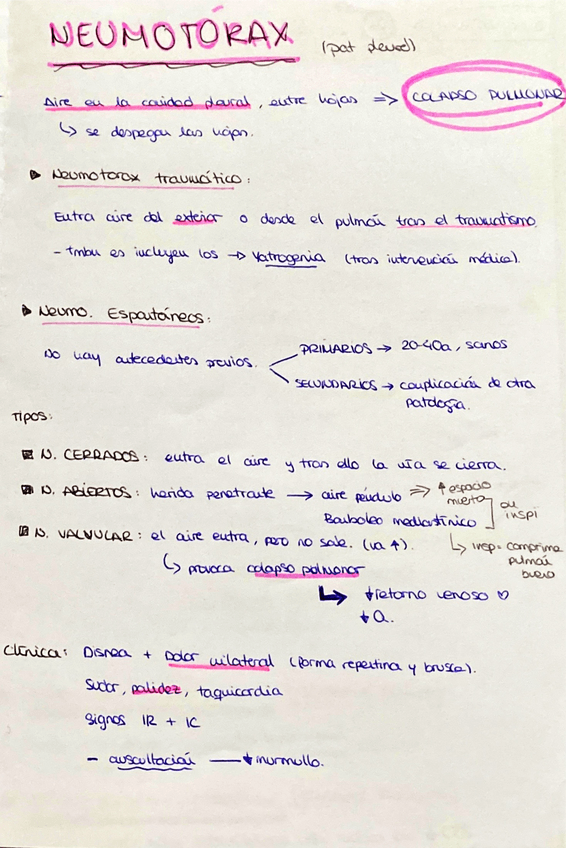 NEUMOTÓRAX (pat pleural)
Aire en la cavidad pleural, entre hojas => COLAPSO PULMONAR
↳ se despegan las hojas.
▶ Neumotorax traumático:
Entra aire del exterior o desde el pulmón tras el traumatismo.
- Tmbn es incluyen los → Yatrogenia (tras intervención médica).
▶ Neumo. Espontáneos:
No hay antecedentes previos.
PRIMARIOS → 20-40a, sanos
SECUNDARIOS → complicación de otra
patología.
Tipos:
N. CERRADOS: entra el aire y tras ello la vía se cierra.
N. ABIERTOS: herida penetrante → aire péndulo => ↑ espacio
muerto
Bamboleo mediastínico
en
inspi
↳ insp = comprime
pulmón
bueno
N. VALVULAR: el aire entra, pero no sale. (va ↑).
↳ provoca colapso pulmonar
↳ ↓ retorno venoso ♡
↓ Q.
Clínica: Disnea + Dolor unilateral (forma repentina y brusca).
Sudor, palidez, taquicardia
Signos IR + IC
- auscultación → ↓ murmullo.